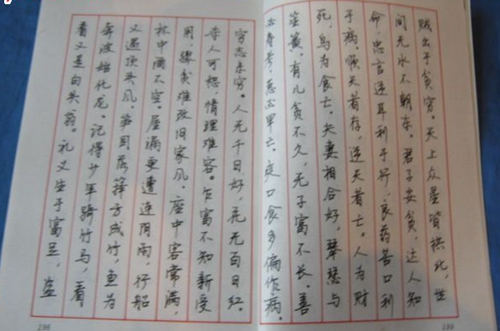 穷。人无千日好，花无百日红。
杀人可恕，情理难容。乍富不知新受
用，骤贫难改旧家风。座中客常满，
杯中酒不空。屋漏更遭连阴雨，行船
又遇顶头风。笋因落箨方成竹，鱼为
奔波始化龙。记得少年骑竹马，看
看又是白头翁。礼义生于富足，盗
贼出于贫穷。天上众星皆拱北，世
间无水不朝东。君子安贫，达人知
命。忠言逆耳利于行，良药苦口利
于病。顺天者存，逆天者亡。人为财
死，鸟为食亡。夫妻相合好，琴瑟与
笙簧。有儿贫不久，无子富不长。善
必寿考，恶必早亡。爽口食多偏作病，